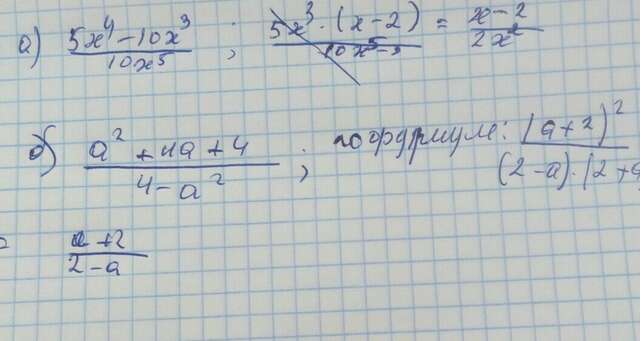 а) (5x⁴ - 10x³)/(10x⁵) ; (5x³ · (x - 2))/(10x⁵⁻³) = (x - 2)/(2x²)
б) (a² + 4a + 4)/(4 - a²) ; по формуле: (a + 2)²/((2 - a) · (2 + a
= (a + 2)/(2 - a)